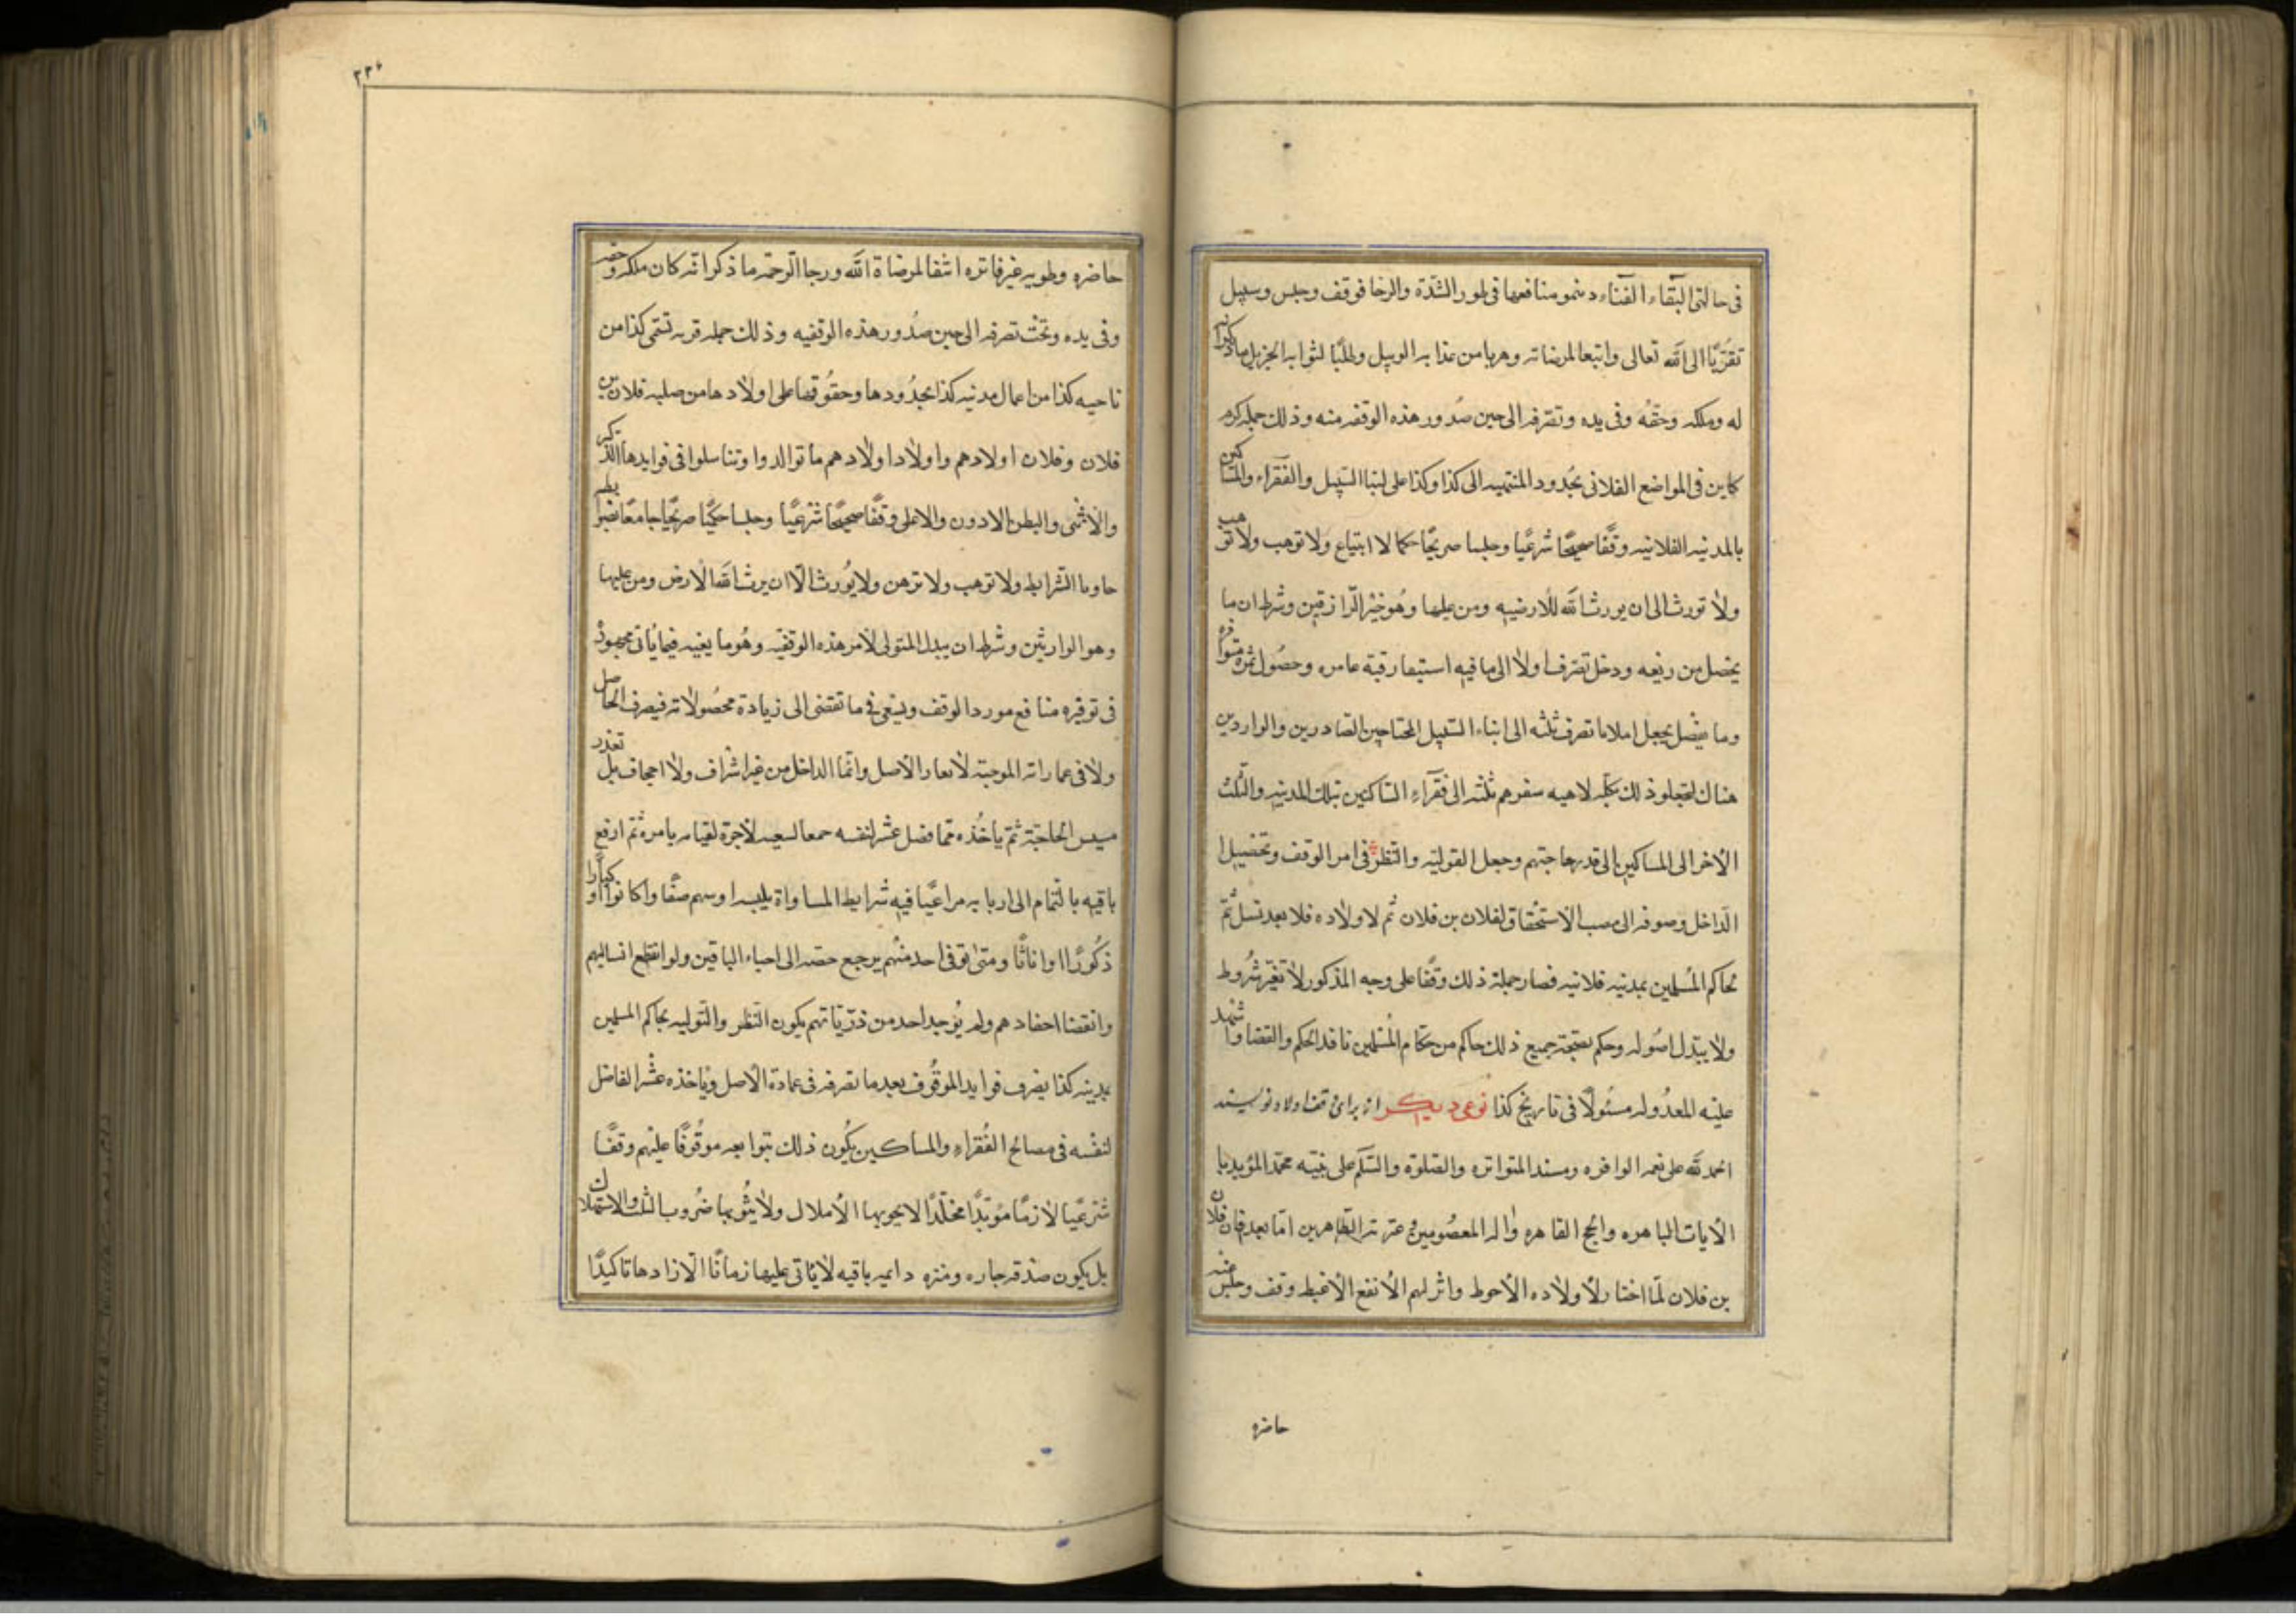 فی حالتی البقاء الفناء د ینمو منافعها فی طور الشدّة والرخا فوقف وحبس وسبیل
تقرّبًا الی الله تعالی وابتغا لمرضاته وهربا من عذابه الوبیل وطلبًا لثوابه الجزیل ما ذکرانه
له وملکه وحقه وفی یده وتصّرفه الی حین صدور هذه الوقفه منه وذلک جمله کرم
کاین فی المواضع الفلانی بحدود المنتهیه الی کذا وکذا علی ابنا السّبیل والفقراء والمساکین
بالمدینه الفلانیه وقفًا صحیحًا شرعیًا وحبسا صریحًا حکما لا ابتیاع ولا توهب ولا توهب
ولا تورث الی ان یورث الله للارضیه ومن علیها وهو خیر الرازقین وشرط ان ما
یحصل من ریعه ودخل تصرف اولا الی ما فیه استبقا رقبة عامره وحصول ثمره متوافره
وما یفضل یجعل املاما تصرف ثلثه الی ابناء السّبیل المحتاجین الصادرین والواردین
هناک لتجعلو ذلک بکله لاهبه سفرهم ثلثه الی فقراءِ السّاکنین بتلک المدینه والثّلث
الاخر الی المساکین الی قدر حاجتهم وجعل القولیّه والنّظر فی امر الوقف وتحصیل ا
الداخل وصوفه الی صب الاستحقاق لفلان بن فلان ثم لاولاده فلا بعد نسل ثمّ
لحاکم المسلمین بمدینه فلانیه فصار جملة ذلک وقفًا علی وجه المذکور لا تغیّر شروط
ولا یبتدل اصوله وحکم بصحّة جمیع ذلک حاکم من حکّام المسلمین نافذ الحکم والقضا واشهد
علیه المعدوله مسئولًا فی تاریخ کذا نوعی دیگر از برای وقف اولاد نویسند
الحمد لله علی نعمه الوافره ومسند المتواتره والصلوة والسّلم علی نبیّه محمّد المؤید با
الایات الباهره والحج القاهره واله المعصومین وعترته الطّاهرین امّا بعد فان فلان
بن فلان لمّا اختار لاولاده الاحوط واثر لهم الانفع الاغبط وقف وحبس عنه
حاضره
۲۲۶
حاضره وطویه غیر فاتره اشقا لمرضاة الله ورجا الرحمة ما ذکر انّه کان ملکه وحقه
وفی یده وتحت تصرفه الی حین صدور هذه الوقفیه وذلک جمله قریه تسّمی کذا من
ناحیه کذا من اعمال مدنیه کذا بحدودها وحقوقها علی اولادها من صلبه فلان بن
فلان وفلان اولادهم واولادا ولادهم ما توالدوا وتناسلوا فی فوایدها الذکر
والانثی والبطن الادون والاعلی وقفًا صحیحًا شرعیًا وحبسا حکمیًا صریحًا جامعًا
حاویا الشّرایط ولا توهب ولا ترهن ولا یورث الّا ان یرث الله الارض ومن علیها
وهو الوارثین وشرط ان یبدل المتولی لامر هذه الوقفیّه وهو ما یعیّنه فیما یاتی مجهود
فی توفیره منافع مورد الوقف ویسعی فی ما تقتضی الی زیادة محصولاته فیصرف الحاصل
ولا فی عماراته الموجبته لابعار الاصل وانّما الداخل من غیر اشراف ولا اجحاف بل تعذر
میس الحاجّة ثمّ یاخذه ممّا فضل عشر لنفسه جمعا لسعیه لاجرة لقیامه بامره ثمّ ارفع
باقیه بالتّمام الی اربابه مراعیًا فیه شرایط المساواة بلیبه اوسهم صغًا واکانوا او کبارًا
ذکورًا او اناثًا ومتی توفی احد منهم یرجع حصّه الی احیاء الباقین ولو انقطع انسالهم
وانقضا احفادهم ولم یوجد احد من ذرّیّاتهم یکون النّظر والتّولیه بحاکم المسلمین
بمدینه کذا یصرف فواید الموقوف بعد ما تصرفه فی عمادة الاصل ویاخذه عشر الفاضل
لنفسه فی مصالح الفقراءِ والمساکین یکون ذلک بتوابعه موقوفًا علیهم وقفًا
شرعیًا لازمًا مؤبّدًا مخلّدًا لا یحوبها الاملال ولا یثوبها ضروب التلف والاستهلاک
بل یکون صدقه جاره ومنزه دایمه باقیه لا یاتی علیها زمانًا الا زادها تاکیدًا